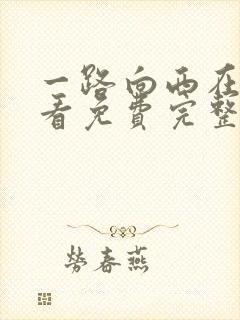 一路向西在
看免费完整
劳春燕